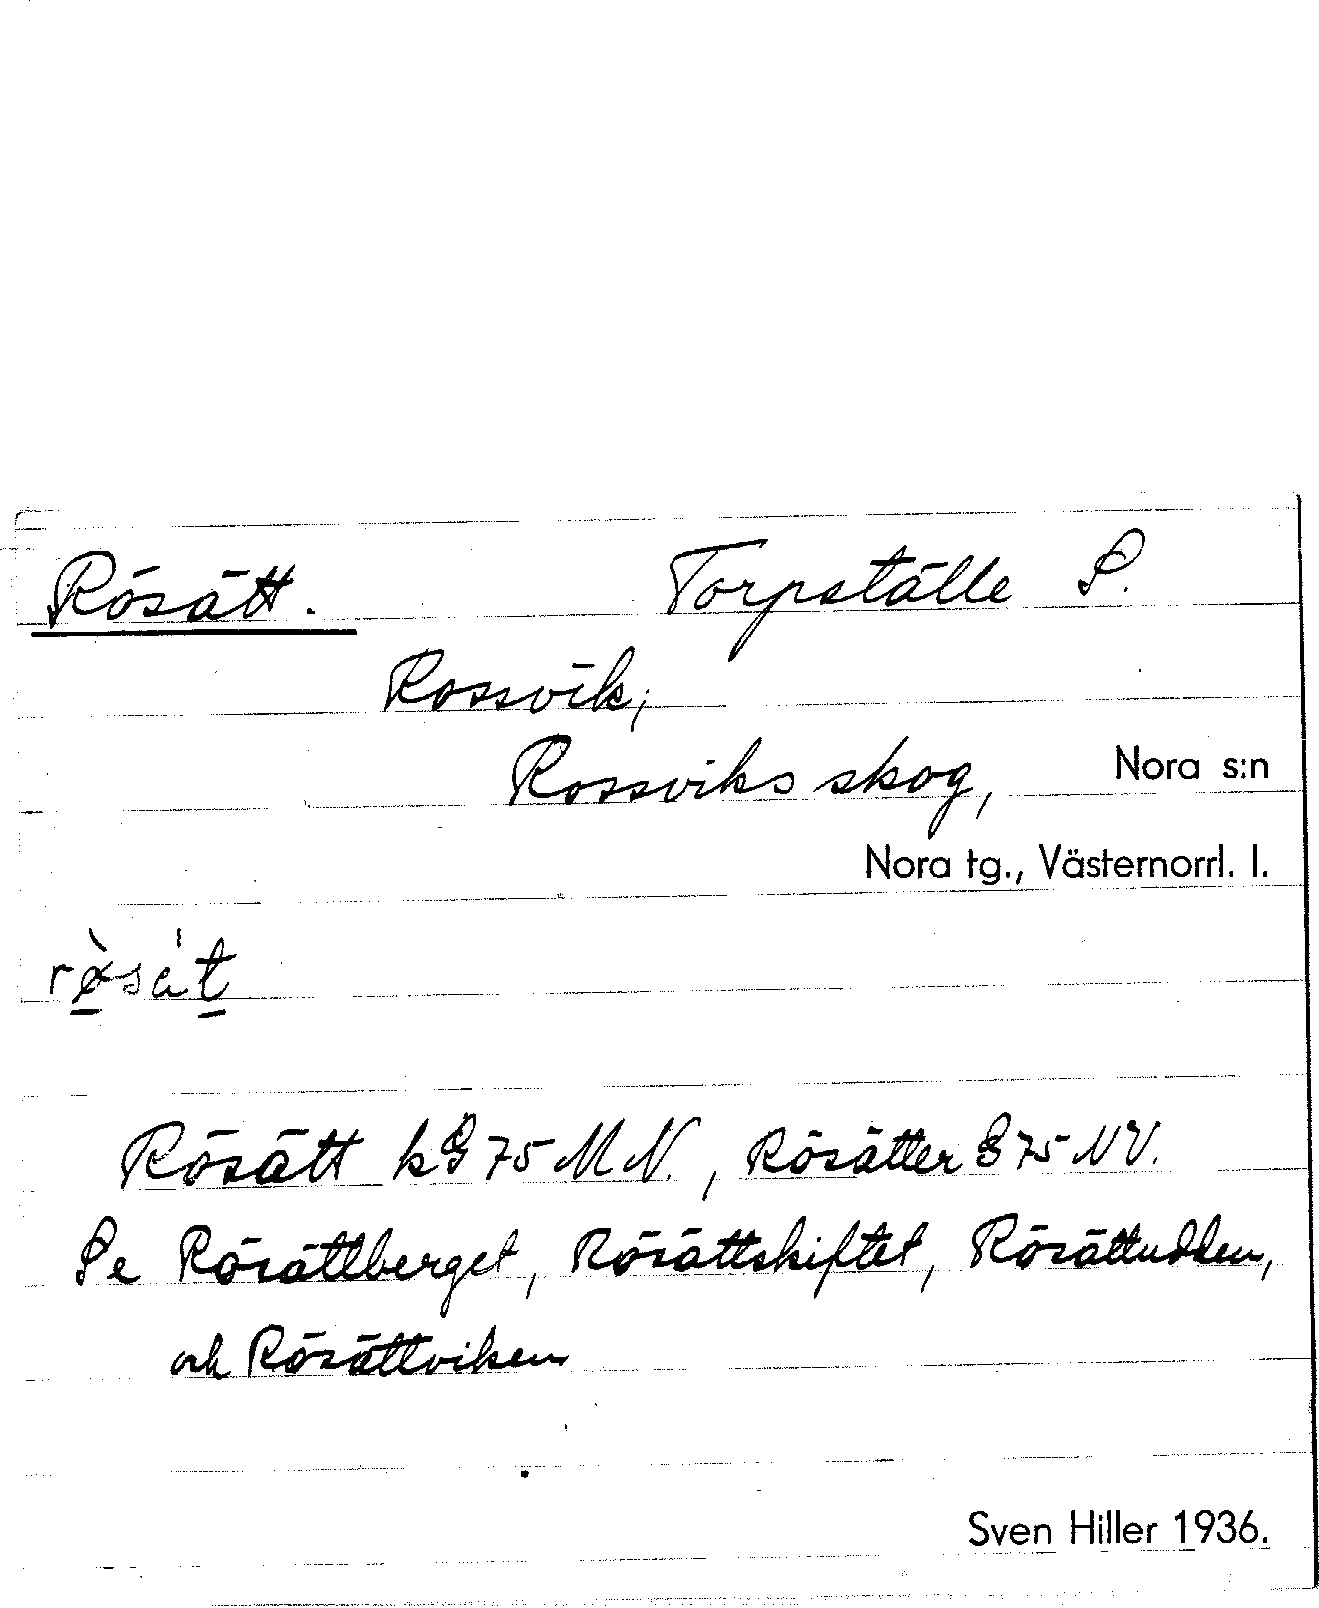 Rösätt. Torpställe S.
Rossvik,
Rossviks skog, Nora s:n
Nora tg., Västernorrl. l.
Rösätt kG 75 MN., Rösätter G 75 NV.
Se Rösättberget, Rösättskiftet, Rösättudden,
och Rösättviken
Sven Hiller 1936.